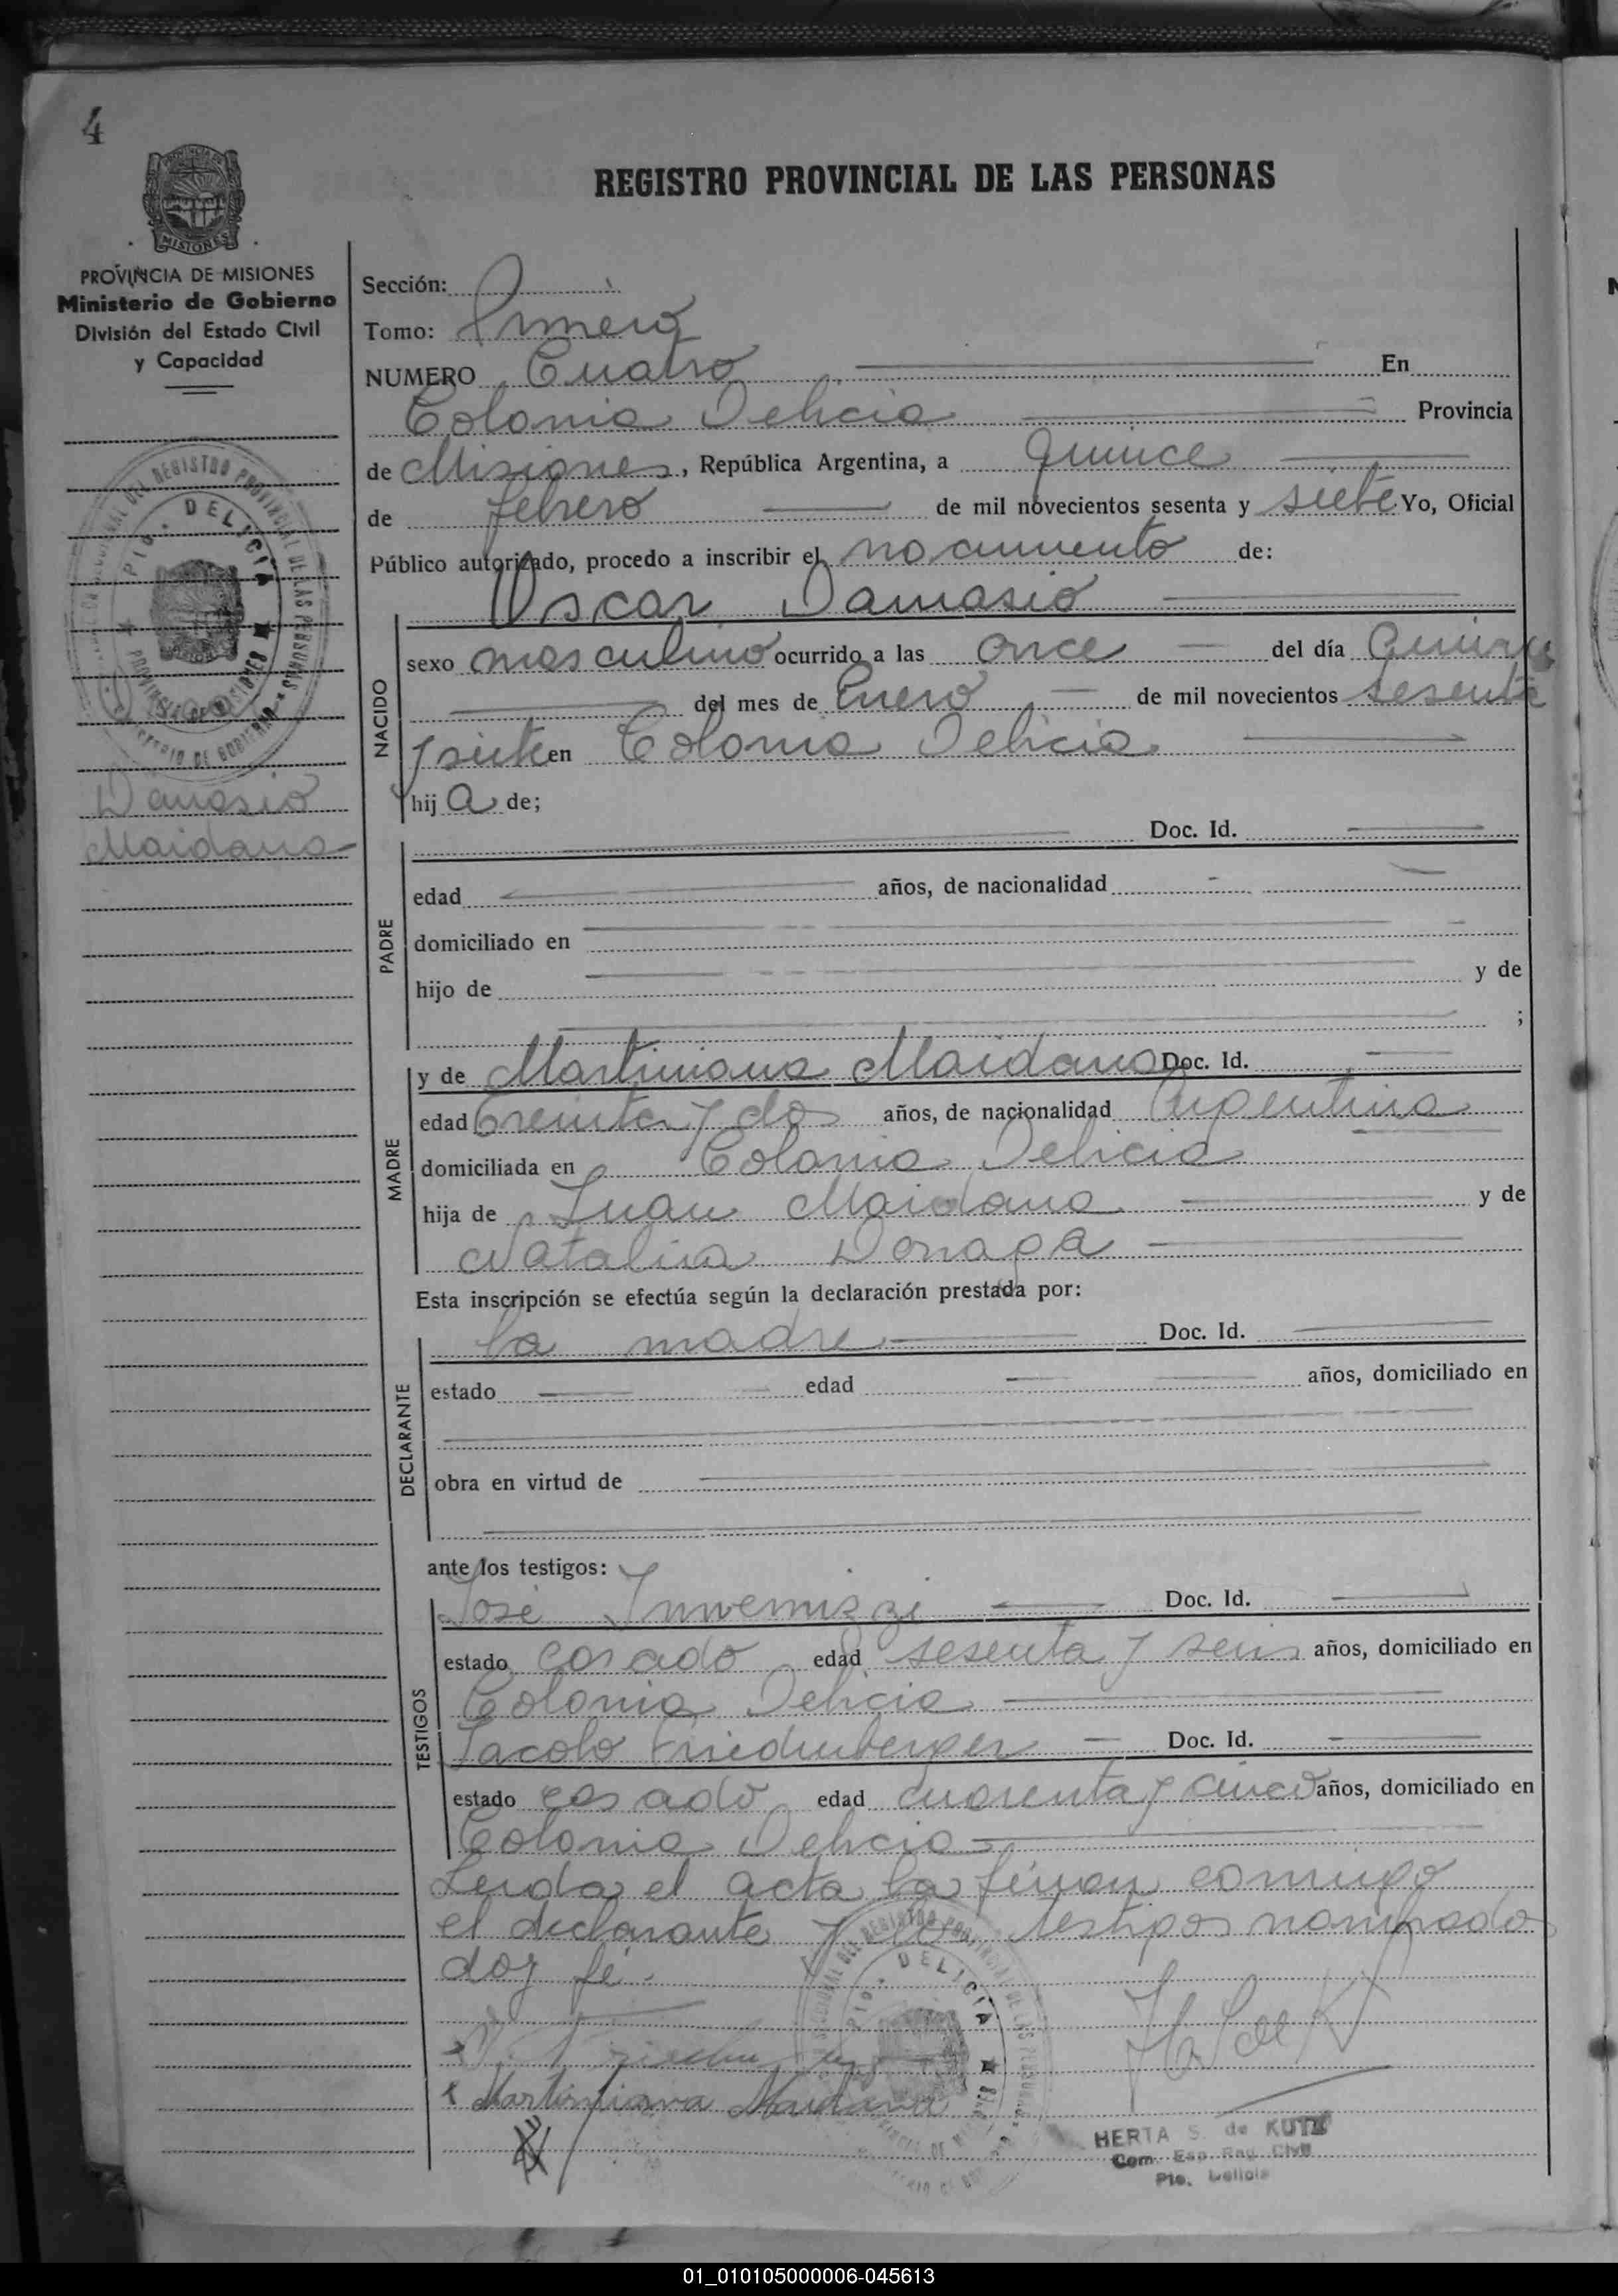 4
REGISTRO PROVINCIAL DE LAS PERSONAS
MISIONES
PROVINCIA DE MISIONES
Ministerio de Gobierno
División del Estado Civil
y Capacidad
Damasio
Maidana
Sección:
Tomo: Primero
NUMERO Cuatro En
Colonia Delicia Provincia
de Misiones, República Argentina, a quince
de febrero de mil novecientos sesenta y siete Yo, Oficial
Público autorizado, procedo a inscribir el nacimiento de:
Oscar Damasio
NACIDO
sexo masculino ocurrido a las once del día Quince
del mes de Enero de mil novecientos sesenta
y siete en Colonia Delicia
hija de;
PADRE
Doc. Id.
edad años, de nacionalidad
domiciliado en
hijo de y de
;
MADRE
y de Martiniana Maidana Doc. Id.
edad treinta y dos años, de nacionalidad Argentina
domiciliada en Colonia Delicia
hija de Juan Maidana y de
Natalia
Esta inscripción se efectúa según la declaración prestada por:
DECLARANTE
la madre Doc. Id.
estado edad años, domiciliado en
obra en virtud de
ante los testigos:
TESTIGOS
José Invernizzi Doc. Id.
estado casado edad sesenta y seis años, domiciliado en
Colonia Delicia
Jacobo Doc. Id.
estado casado edad cuarenta y cinco años, domiciliado en
Colonia Delicia
Leida el acta la firman conmigo
el declarante y los testigos nombrado
doy fé.
Martiniana Maidana
HERTA S. de KUTZ
Com. Esp. Reg. Civil
Pto. Delicia
01_010105000006-045613